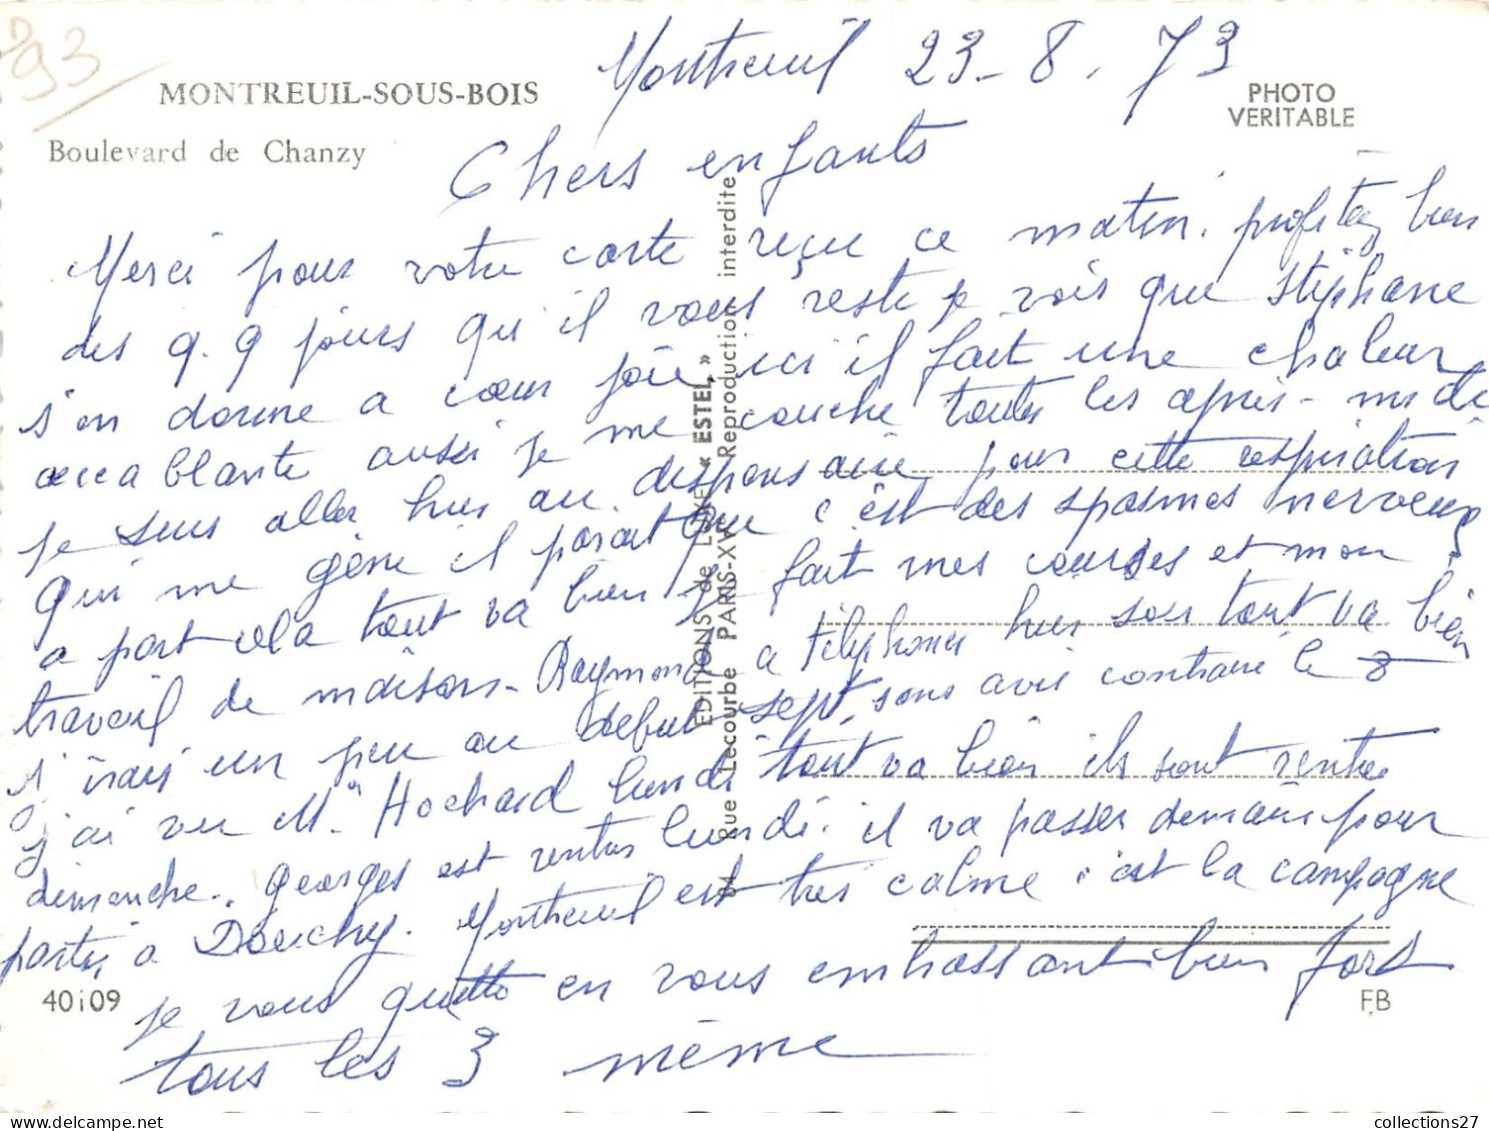 93
MONTREUIL-SOUS-BOIS
Boulevard de Chanzy
PHOTO
VERITABLE
Montreuil 23-8.73
Chers enfants
Merci pour votre carte reçue ce matin. profitez bien
des q.q jours qu'il vous reste je vois que Stéphane
s'en donne a cœur joie ici il fait une chaleur
accablante aussi je me couche toutes les après-midi
je suis aller hier au dispensaire pour cette respiration
qui me gène il parait que c'est des spasmes nerveux
a part cela tout va bien je fait mes courses et mon
travail de maison - Raymond a téléphoner hier soir tout va bien
j'irais un peu au début sept, sans avis contraire le 8
j'ai vu Mr Hochard lundi tout va bien ils sont rentrer
dimanche. Georges est rentrer lundi. il va passer demain pour
partir a Douchy. Montreuil est très calme c'est la campagne
je vous quitte en vous embrassant bien fort
tous les 3 mémé
EDITIONS de LUXE « ESTEL »
84 Rue Lecourbe PARIS-XVe Reproduction interdite
40i09
F.B
collections27